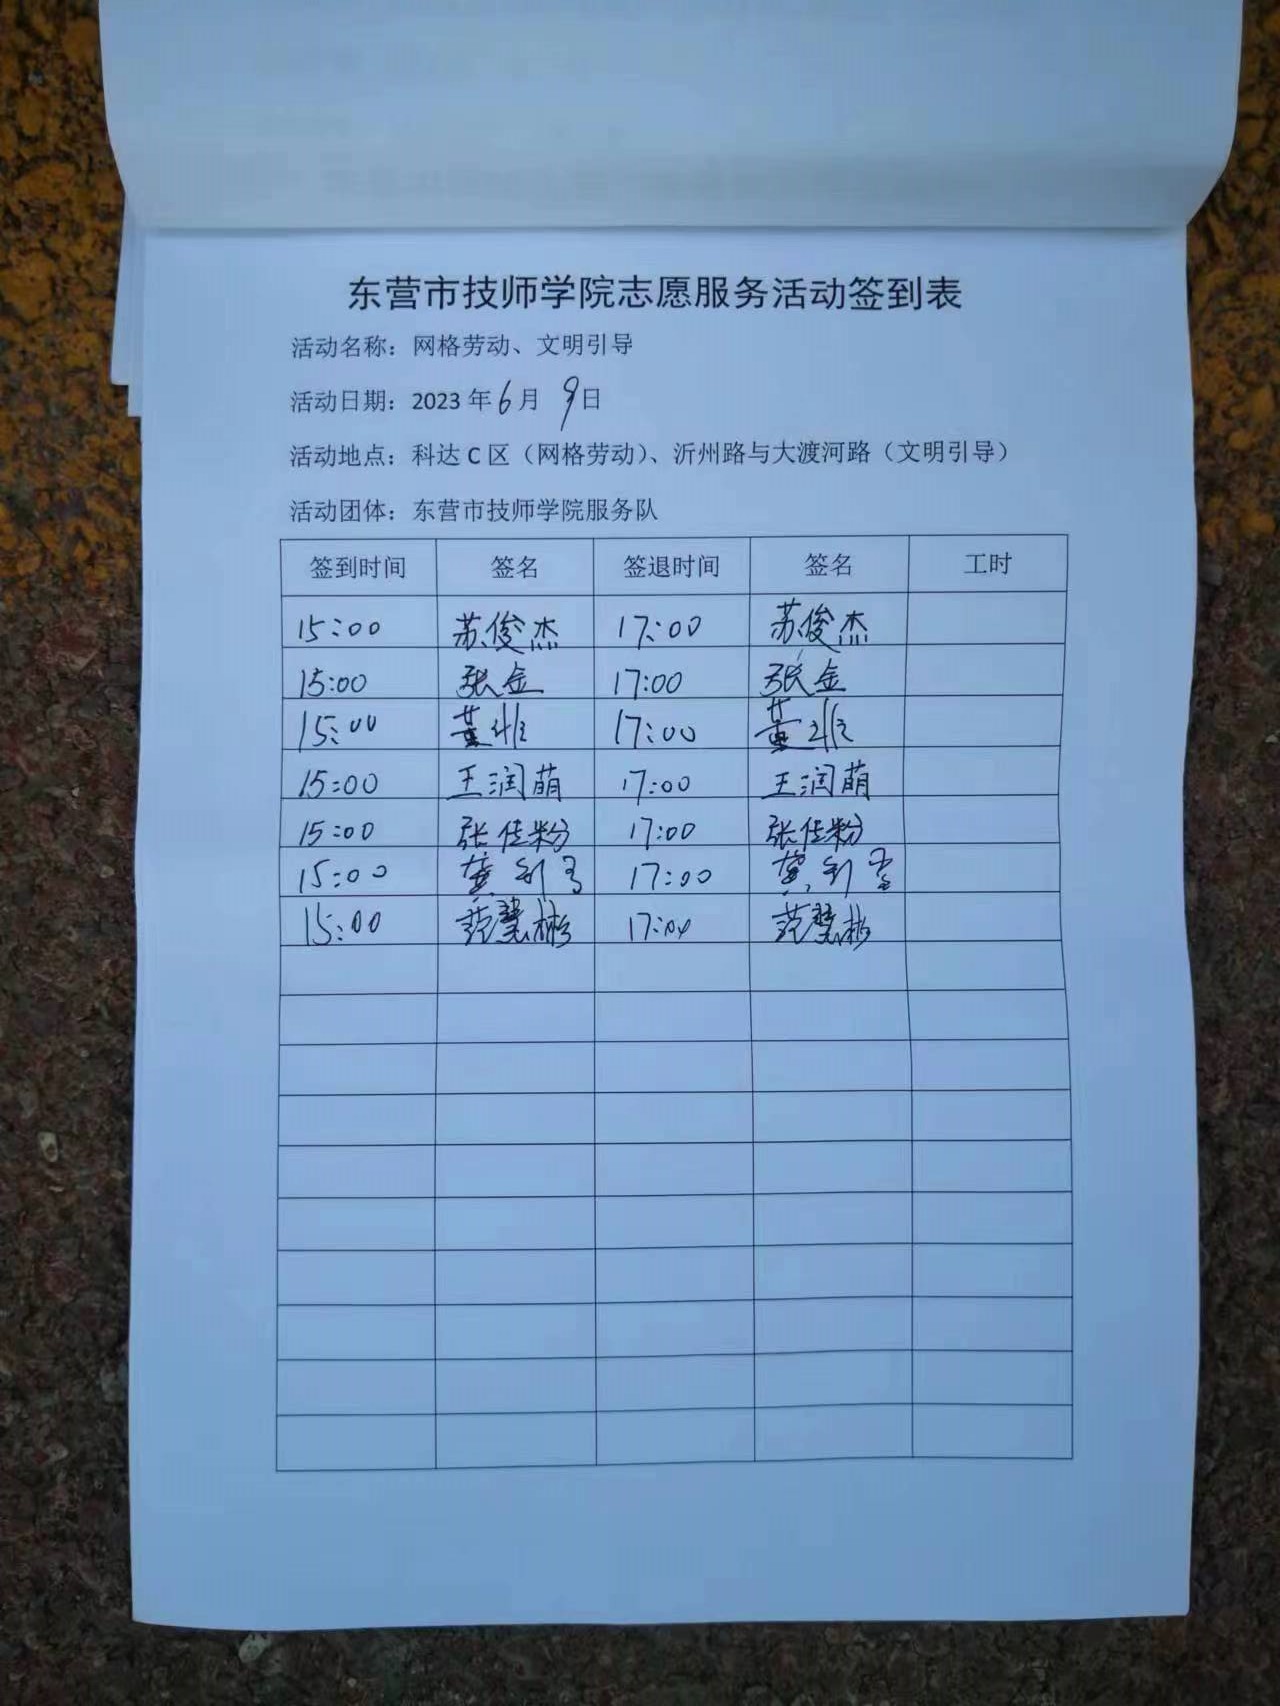 东营市技师学院志愿服务活动签到表
活动名称：网格劳动、文明引导
活动日期：2023 年 6 月 9 日
活动地点：科达 C 区（网格劳动）、沂州路与大渡河路（文明引导）
活动团体：东营市技师学院服务队
签到时间 签名 签退时间 签名 工时
15:00 苏俊杰 17:00 苏俊杰
15:00 张金 17:00 张金
15:00 黄 17:00 黄
15:00 王润萌 17:00 王润萌
15:00 张佳粉 17:00 张佳粉
15:00 17:00
15:00 范慧彬 17:00 范慧彬